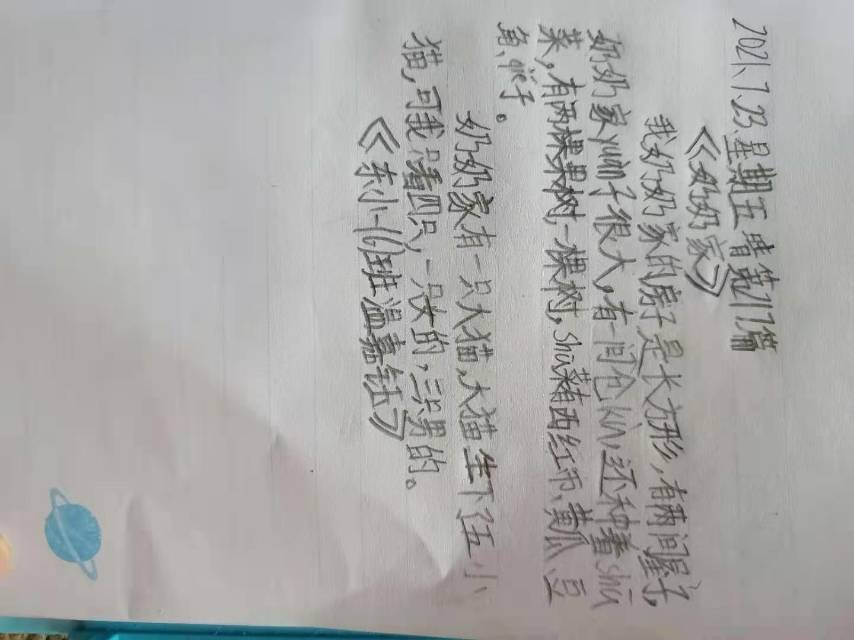 2021.7.23.星期五 晴 第117篇
《奶奶家》
我奶奶家的房子是长方形,有两间屋子,
奶奶家yuàn子很大,有一间仓kù,还种着shū
菜,有两棵果树,一棵树,shū菜有西红币、黄瓜、豆
角、qié子。
奶奶家有一只大猫,大猫生下了五小
猫,可我只看四只,一只女的,三只男的。
《东小一(6)班温嘉钰》